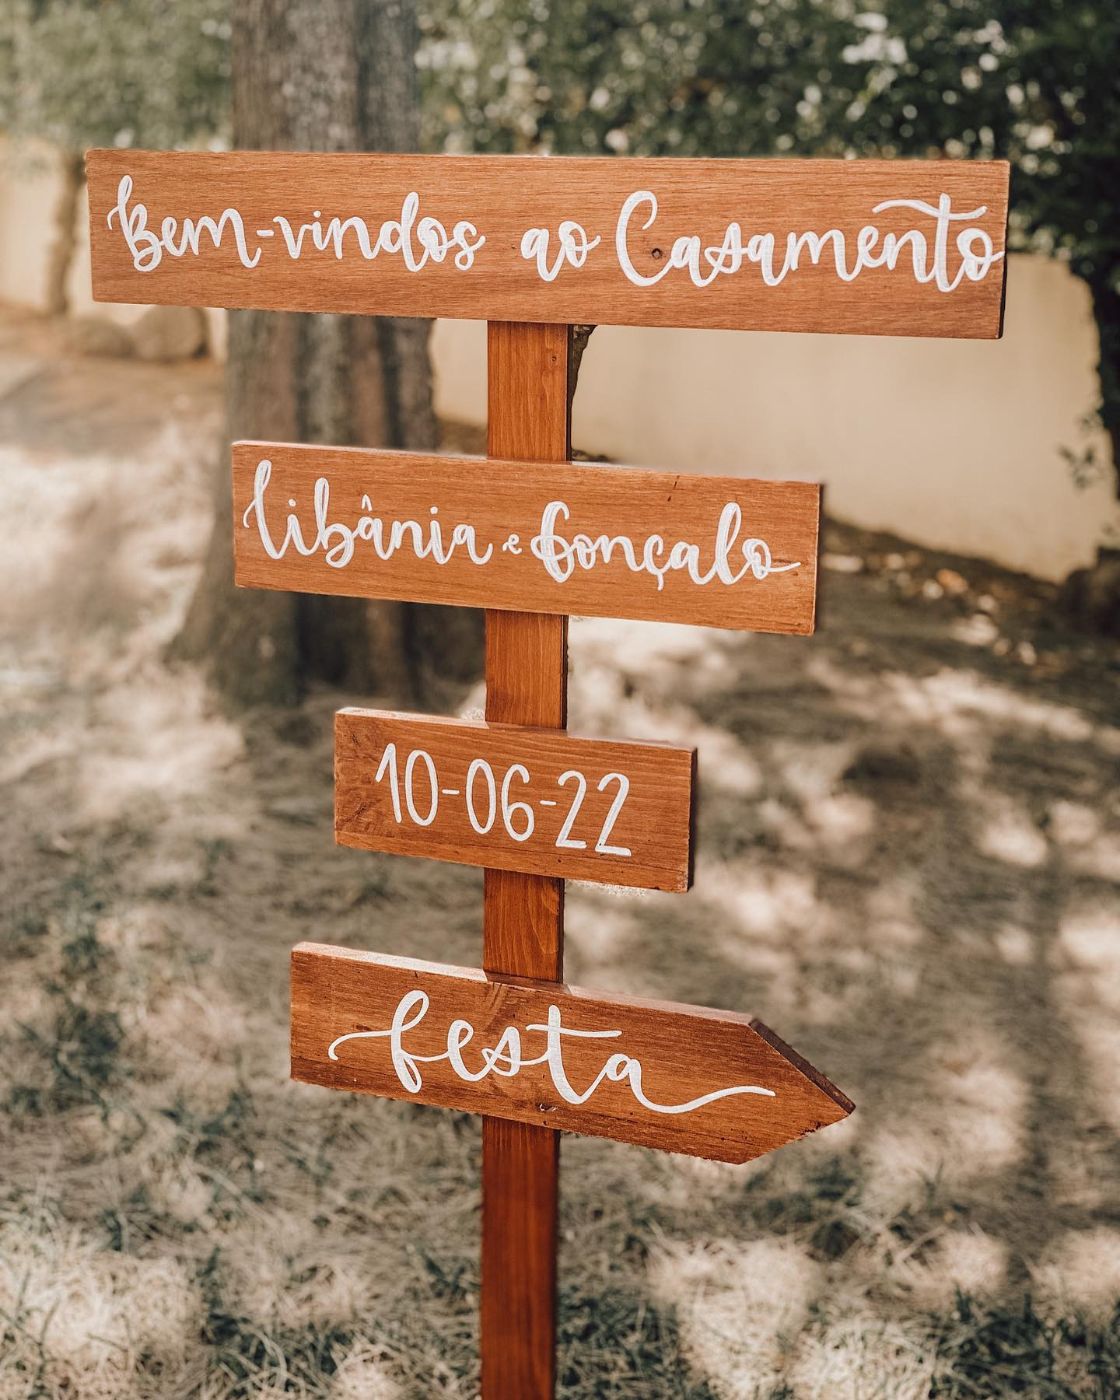 Bem-vindos ao Casamento
Libânia e Gonçalo
10-06-22
festa